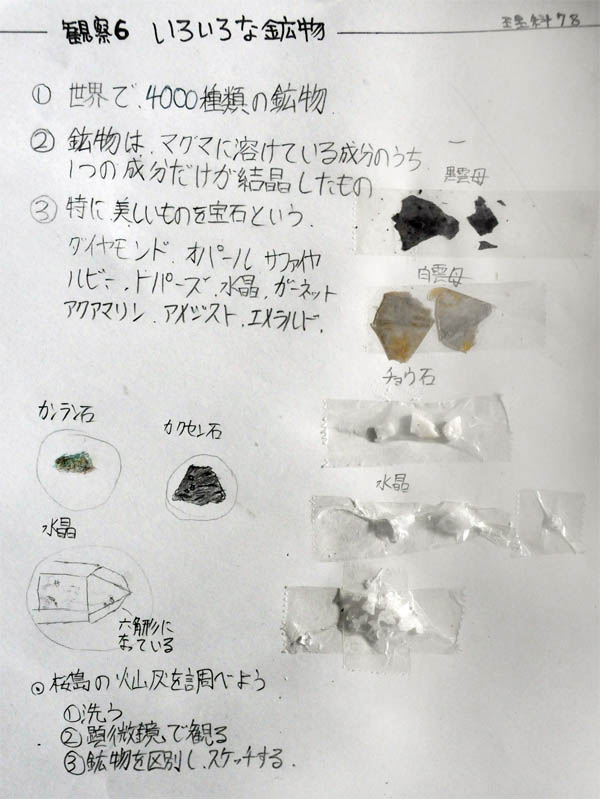 観察6 いろいろな鉱物
理科78
① 世界で、4000種類の鉱物
② 鉱物は、マグマに溶けている成分のうち
1つの成分だけが結晶したもの
③ 特に美しいものを宝石という
ダイヤモンド、オパール サファイヤ
ルビー、トパーズ、水晶、ガーネット
アクアマリン、アメジスト、エメラルド、
黒雲母
白雲母
チョウ石
水晶
カンラン石
カクセン石
水晶
六角形に
なっている
桜島の火山灰を調べよう
①洗う
②顕微鏡で観る
③鉱物を区別し、スケッチする